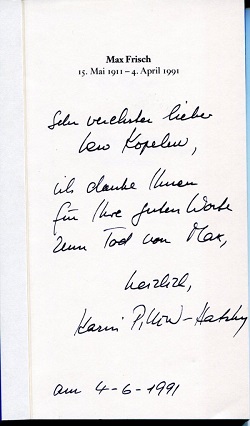 Max Frisch
15. Mai 1911 – 4. April 1991
Sehr verehrter lieber
Lew Kopelew,
ich danke Ihnen
für Ihre guten Worte
zum Tod von Max,
herzlich,
Karin
am 4-6-1991